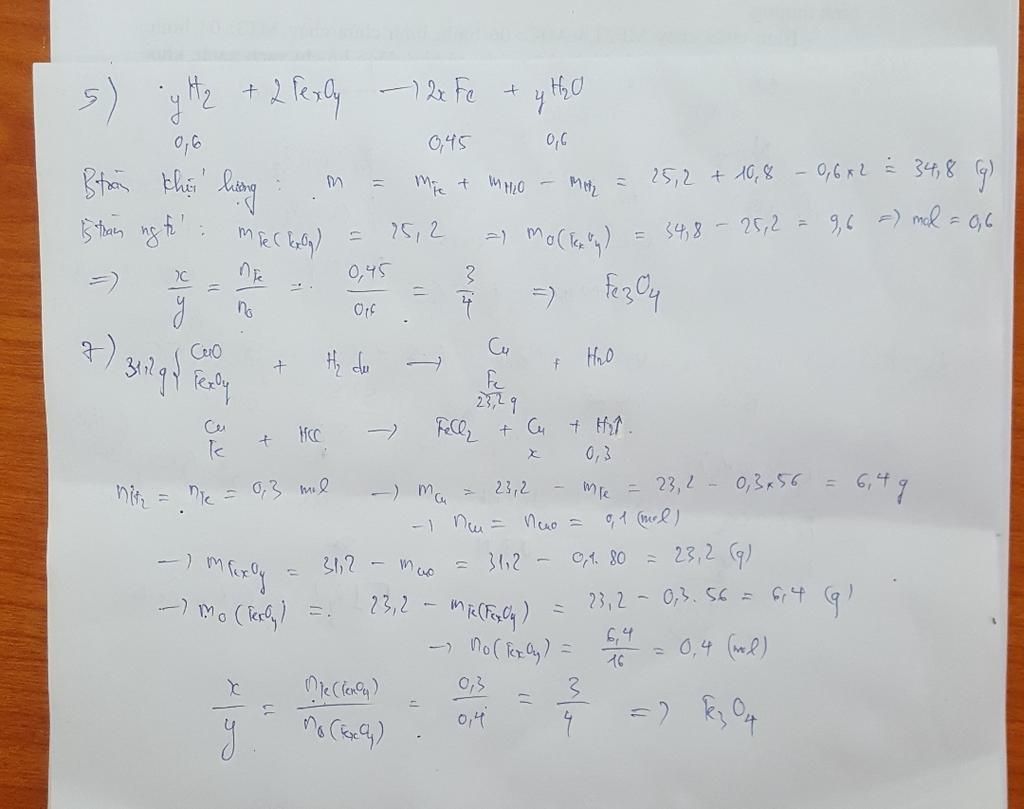 5) yH2 + 2FexOy → 2xFe + yH2O
0,6 0,45 0,6
Btoàn khối lượng : m = mFe + mH2O - mH2 = 25,2 + 10,8 - 0,6x2 = 34,8 (g)
Btoàn ngtố : mFe(FexOy) = 25,2 => mO(FexOy) = 34,8 - 25,2 = 9,6 => mol = 0,6
=> x/y = nFe/nO = 0,45/0,6 = 3/4 => Fe3O4
7) 31,2g { CuO FexOy + H2 dư → Cu Fe 23,2g + H2O
Cu Fe + HCl → FeCl2 + Cu + H2↑.
x 0,3
nH2 = nFe = 0,3 mol → mCu = 23,2 - mFe = 23,2 - 0,3x56 = 6,4 g
→ nCu = nCuO = 0,1 (mol)
→ mFexOy = 31,2 - mCuO = 31,2 - 0,1.80 = 23,2 (g)
→ mO(FexOy) = 23,2 - mFe(FexOy) = 23,2 - 0,3.56 = 6,4 (g)
→ nO(FexOy) = 6,4/16 = 0,4 (mol)
x/y = nFe(FexOy)/nO(FexOy) = 0,3/0,4 = 3/4 => Fe3O4